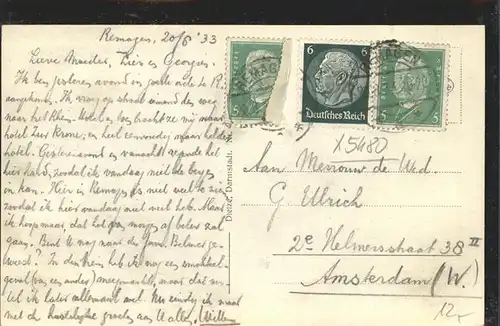 Remagen, 20/6 '33
Lieve Moeder, Lies en Georges.
Ik ben gisteren avond in goede orde te R.
aangekomen. Ik vroeg op straat iemand den weg
naar het Rhein Hotel en bracht ze mij naar
hotel Zur Krone, en heel eenvoudig maar helder
hotel. Gisteren avond en vannacht regende het
hier hard, zoodat ik vandaag niet de bergen
in kan. Hier in Remagen is niet veel te zien
zoodat ik hier vandaag niet veel heb. Maar
ik hoop maar, dat het morgen of beter zal
gaan. Bent U nog naar de
geweest? In den trein heb ik nog een
geval (van een ander) meegemaakt, maar dat ver-
tel ik later allemaal wel. Nu eindig ik maar
met de hartelijke groeten aan U allen, Willem
Dietze, Darmstadt.
5
6
Deutsches Reich
5
REMAGEN
X5480
Aan Mevrouw de Wed.
G. Ulrich
2e Helmersstraat 38 II
Amsterdam (W.)
12,-